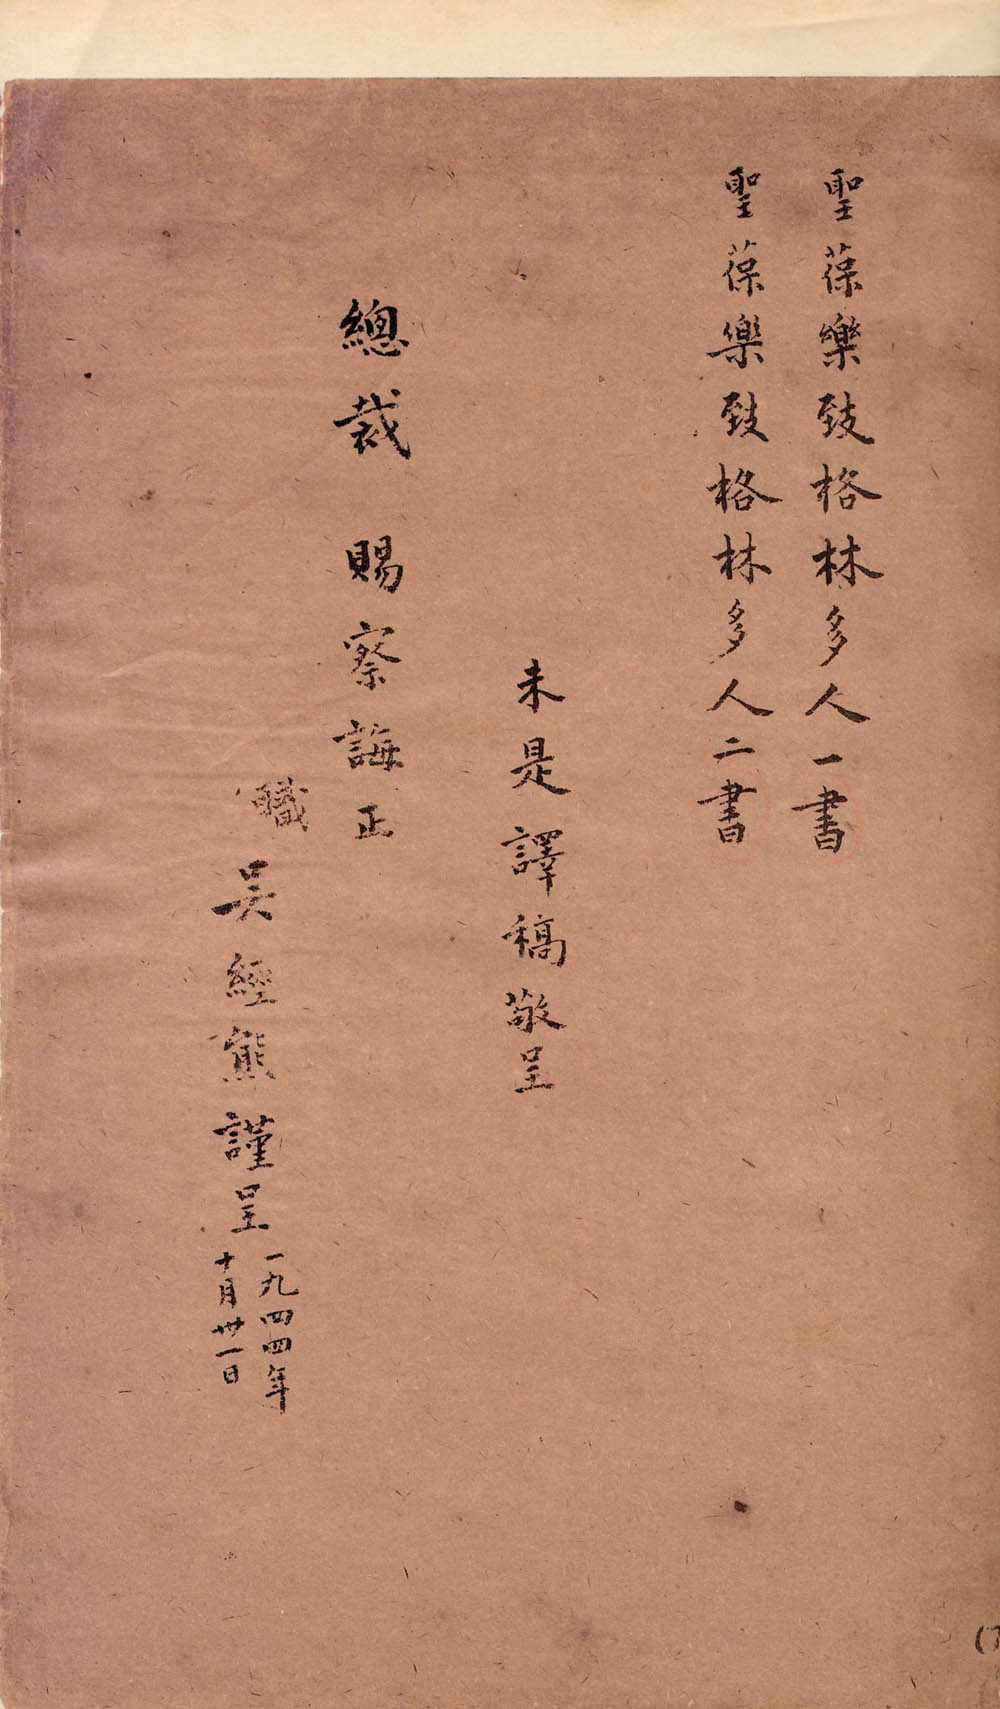 聖葆樂致格林多人一書
聖葆樂致格林多人二書
未是譯稿敬呈
總裁 賜察誨正
職 吳經熊謹呈
一九四四年
十月卅一日